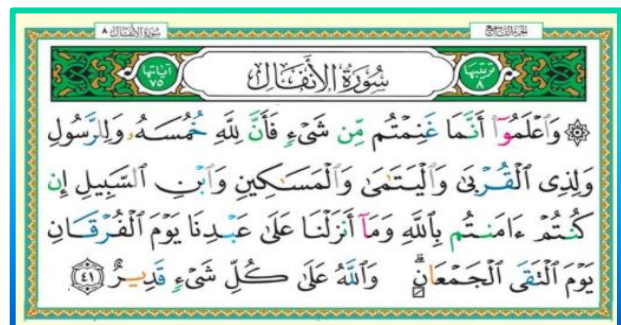 سُورَةُ الأَنفَالِ ٨
تَرْتِيبُهَا ٨ سُورَةُ الْأَنفَالِ آيَاتُهَا ٧٥
۞ وَٱعْلَمُوٓا۟ أَنَّمَا غَنِمْتُم مِّن شَىْءٍ فَأَنَّ لِلَّهِ خُمُسَهُۥ وَلِلرَّسُولِ
وَلِذِى ٱلْقُرْبَىٰ وَٱلْيَتَـٰمَىٰ وَٱلْمَسَـٰكِينِ وَٱبْنِ ٱلسَّبِيلِ إِن
كُنتُمْ ءَامَنتُم بِٱللَّهِ وَمَآ أَنزَلْنَا عَلَىٰ عَبْدِنَا يَوْمَ ٱلْفُرْقَانِ
يَوْمَ ٱلْتَقَى ٱلْجَمْعَانِ ۗ وَٱللَّهُ عَلَىٰ كُلِّ شَىْءٍ قَدِيرٌ ٤١